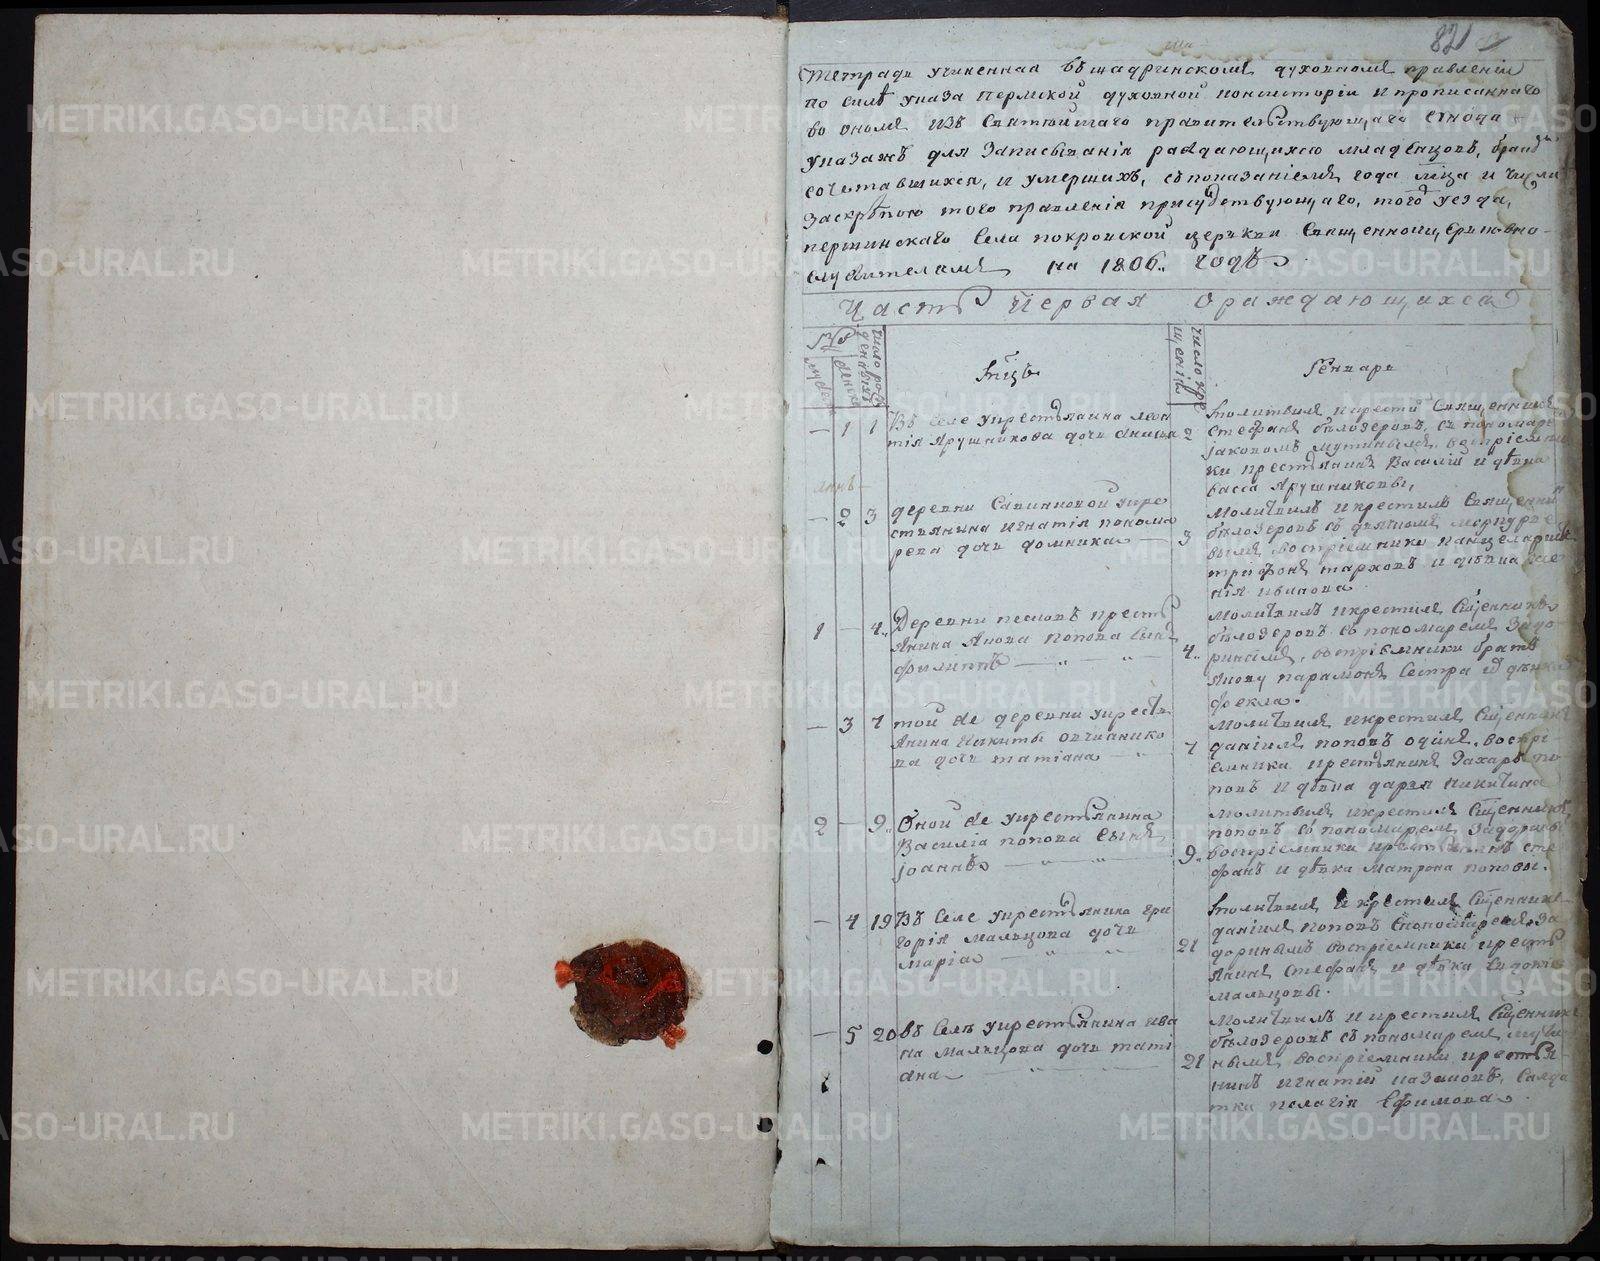 821
Тетрадь учиненная въ шадринскомъ духовномъ правленіи
по силѣ указа пермской духовной консисторіи и прописаннаго
во ономъ изъ Святѣйшаго правительствующаго синода
указахъ для записыванія раждающихся младенцовъ, бракомъ
сочетавшихся, и умершихъ, съ показаніемъ года мца и числа
заскрѣпою того правленія присудствующаго, того уезда,
першинскаго села покровской церкви Священноцерковно-
служителямъ на 1806. годъ
Часть первая ораждающихся
мужеска
женска
число рожденія
мць
число крещенія
Генварь
1 1 Въ селе укрестьянина леон
тія Ярушникова дочь
2
молитвилъ и крести священникъ
стефанъ бѣлозеровъ, съ пономаремъ
іаковомъ мутинымъ, воспріемни
ки крестьянинъ Василій и дѣвка
васса Ярушниковы,
2 3 деревни Савинновой укре
стьянина Игнатія понома
рева дочь домника
3
молитвилъ и крестилъ священникъ
бѣлозеровъ съ дьячкомъ
вымъ, воспріемники канцеляристъ
трифонъ тарховъ и дѣвка
1 4 Деревни песковъ кресть
янина Якова попова сынъ
филиппъ
4
молитвилъ и крестилъ сщенникъ
бѣлозеровъ съ пономаремъ задо
ринымъ, воспріемники братъ
якову парамонъ сестра дѣвка
фекла.
3 7 той же деревни укресть
янина Никиты овчиннико
ва дочь татіана
7
молитвилъ и крестилъ сщенникъ
даніилъ поповъ одинъ, воспрі
емники крестьянинъ Захаръ по
повъ и дѣвка дарья никитина
2 9 Оной же укрестьянина
Василія попова сынъ
іоаннъ
9
молитвилъ и крестилъ сщенникъ
поповъ съ пономаремъ задорины
воспріемники крестьянинъ сте
фанъ и дѣвка матрона поповы.
4 19 Въ селе укрестьянина гри
горія мальцова дочь
марія
21
молитвилъ и крестилъ сщенникъ
даніилъ поповъ спономаремъ за
доринымъ воспріемники кресть
янинъ стефанъ и дѣвка евдокія
мальцовы.
5 20 въ селѣ укрестьянина ива
на мальцова дочь тати
ана
21
молитвилъ и крестилъ сщенникъ
бѣлозеровъ съ пономаремъ мути
нымъ, воспріемники крестья
нинъ игнатій казаковъ, салда
тка пелагія Ефимова
METRIKI.GASO-URAL.RU